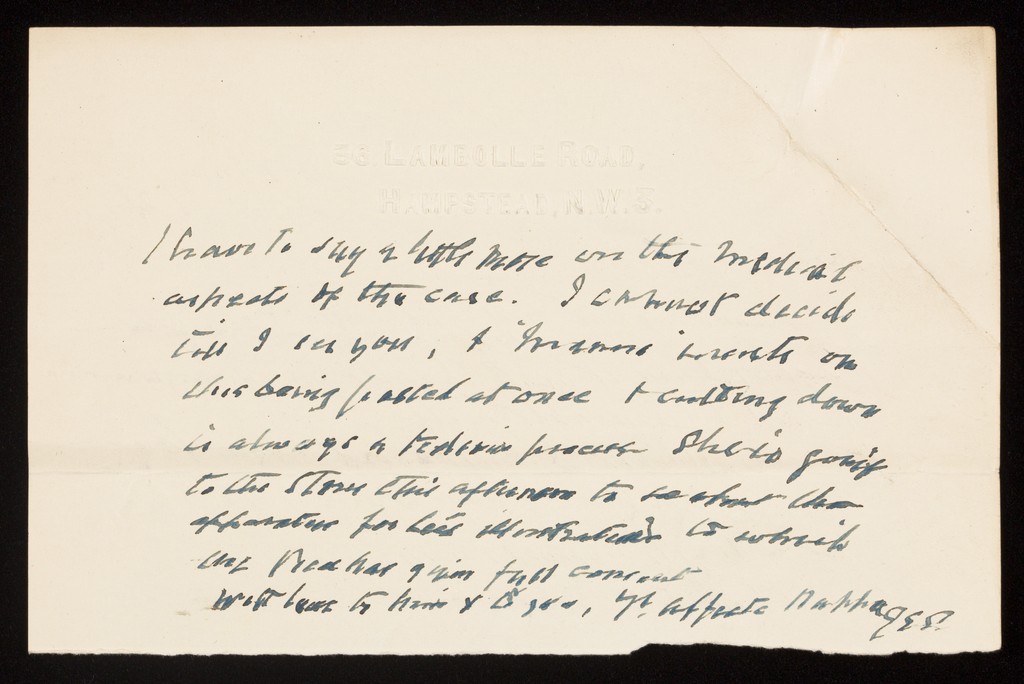 58. LAMBOLLE ROAD,
HAMPSTEAD, N.W.3.
I have to say a little more on the medical
aspects of the case. I cannot decide
till I see you, & insists on
this being posted at once & cutting down
is always a tedious process She is going
to the Stores this afternoon to see about the
apparatus for to which
has given full consent
With love to him & to you, Yr affecte